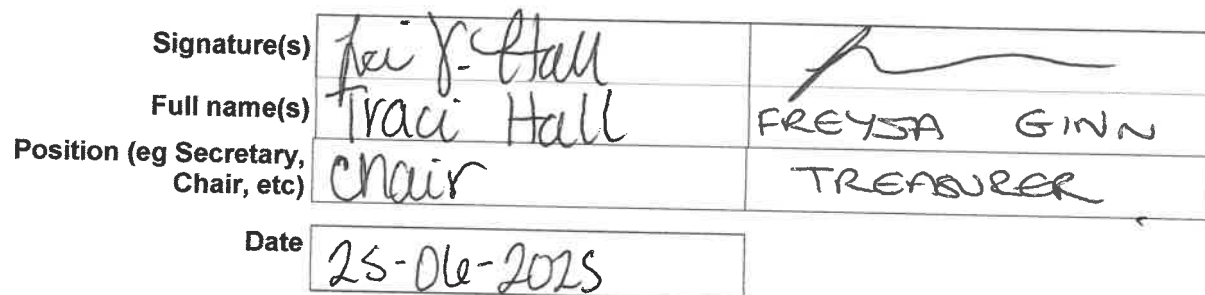 Signature(s) Hall
Full name(s) Traci Hall FREYSA GINN
Position (eg Secretary,
Chair, etc) Chair TREASURER
Date 25-06-2025